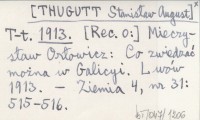 [THUGUTT Stanisław August] *
T-t. 1913. [Rec. o:] Mieczy-
sław Orłowicz: Co zwiedzać
można w Galicyi. Lwów
1913. – Ziemia 4, nr 31:
515-516.